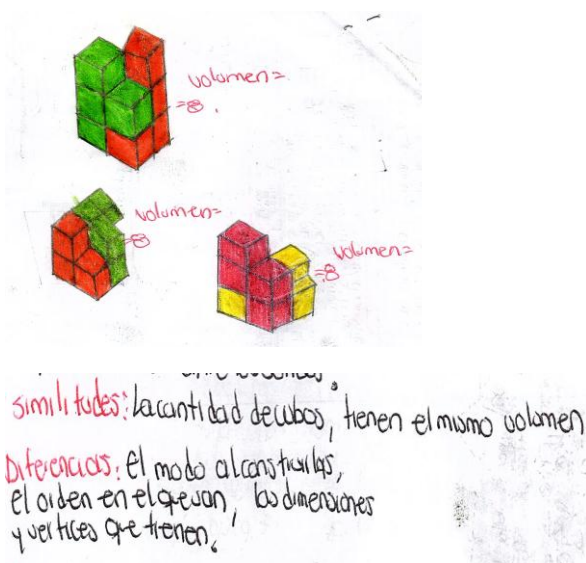 volumen=
=8.
volumen=
=8
volumen=
=8
Similitudes: La cantidad de cubos, tienen el mismo volumen
Diferencias: el modo al construirlas,
el orden en el que van, las dimensiones
y vertices que tienen.